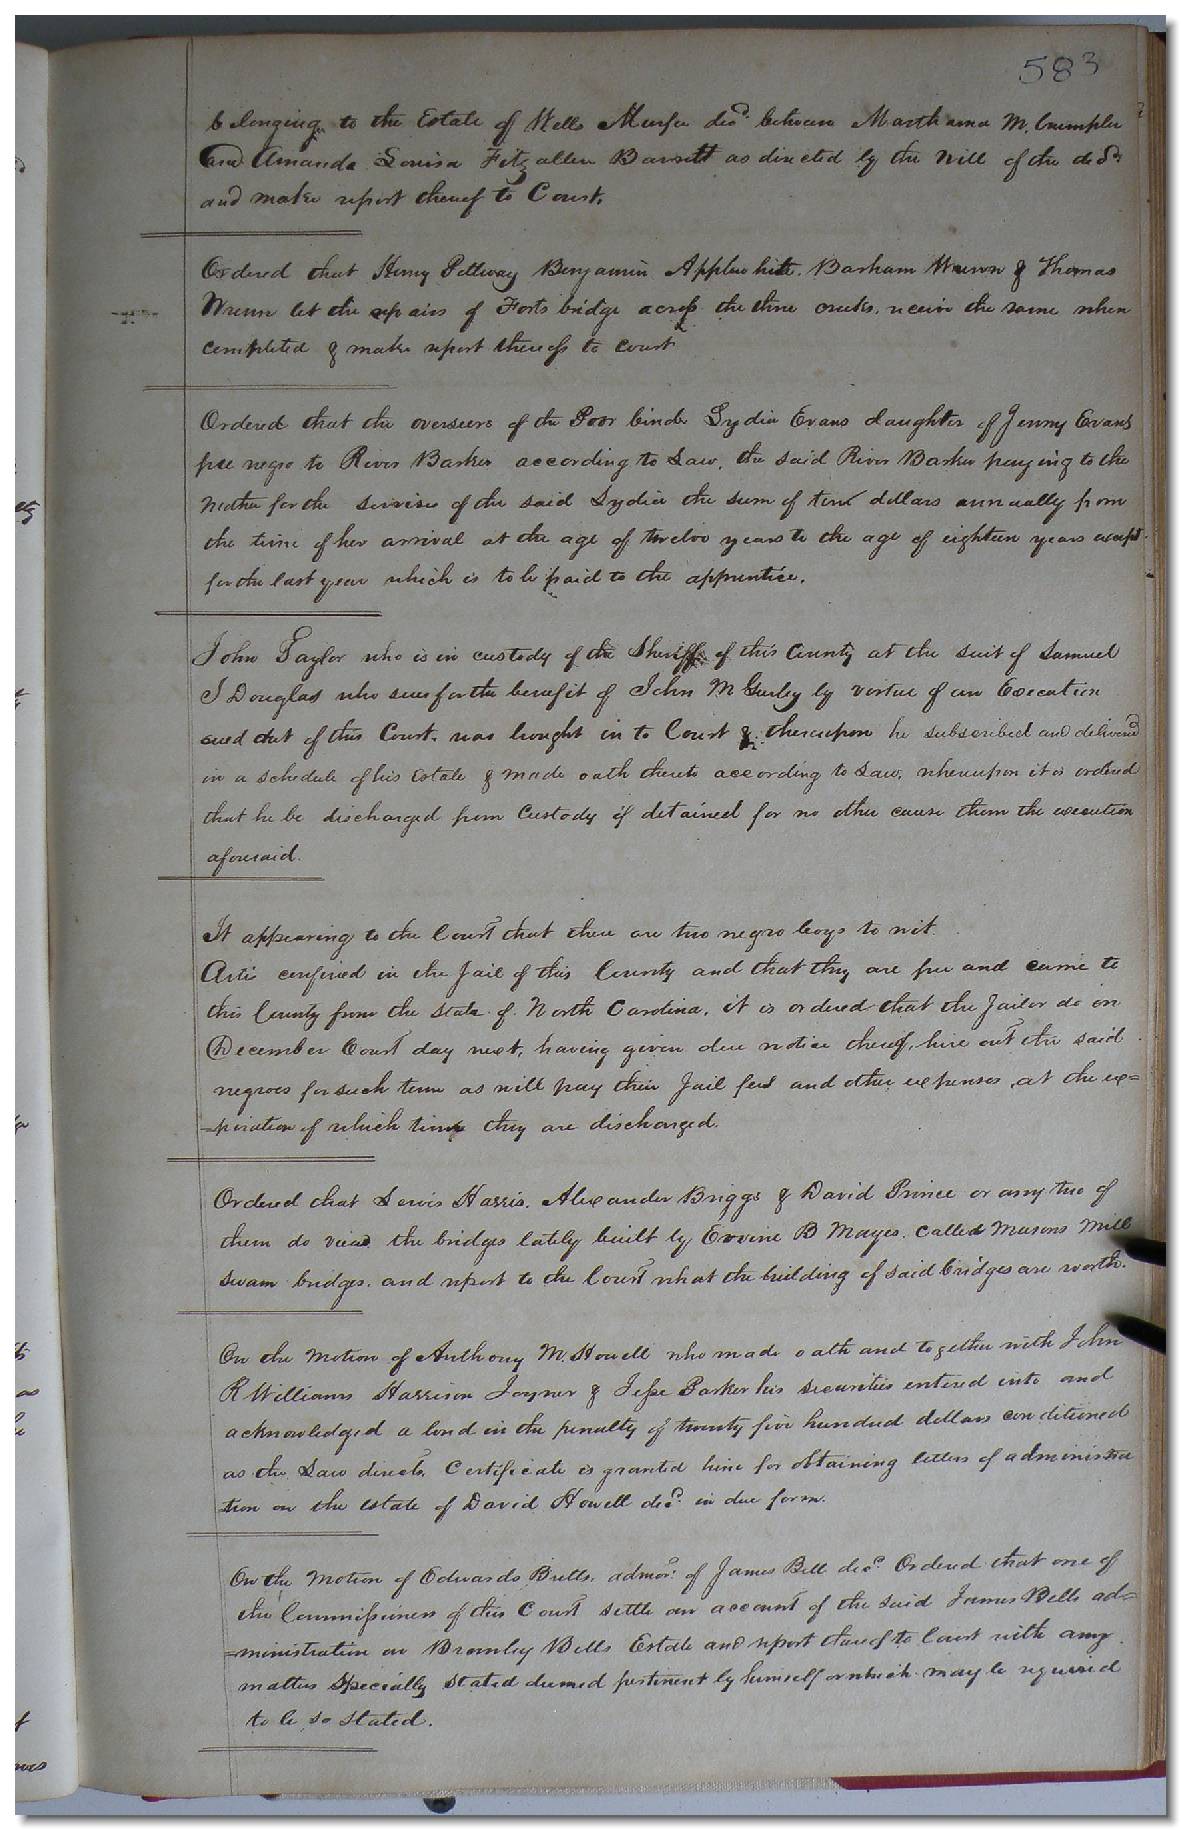 583
belonging to the Estate of Wells Murfee decd. between Marthanna M. Crumpler
and Amanda Louisa Fitzallen Barnett as directed by the Will of the decd.
and make report thereof to Court.
Ordered that Henry Pettway Benjamin Applewhite. Barham Wrenn & Thomas
Wrenn let the repairs of Forts bridge across the three creeks, receive the same when
completed & make report thereof to court
Ordered that the overseers of the Poor binde Lydia Evans daughter of Jenny Evans
free negro to River Barker according to Law, the said River Barker paying to the
Mother for the servise of the said Lydia the sum of dollars annually from
the time of her arrival at the age of twelve years to the age of eighteen years except
for the last year which is to be paid to the apprentice.
John Taylor who is in custody of the Sheriff of this County at the suit of Samuel
J Douglas who sues for the benefit of John M Gurley by virtue of an Execution
sued out of this Court. was brought in to Court & thereupon he subscribed and delivered
in a schedule of his Estate & made oath thereto according to Law, whereupon it is ordered
that he be discharged from Custody if detained for no other cause them the execution
aforesaid.
It appearing to the Court that there are two negro boys to wit
Artis confined in the Jail of this County and that they are free and came to
this County from the state of North Carolina, it is ordered that the Jailor do on
December Court day next, having given due notice thereof, hire out the said
negroes for such term as will pay their Jail fees and other expenses at the ex=
=piration of which time they are discharged.
Ordered that Lewis Harris. Alexander Briggs & David Prince or any two of
them do view the bridges lately built by Ervine B Mayes. Called Masons Mill
Swam bridges. and report to the Court what the building of said bridges are worth.
On the Motion of Anthony M. Howell who made oath and together with John
R Williams Harrison Joyner & Jesse Parker his securities entered into and
acknowledged a bond in the penalty of twenty five hundred dollars conditioned
as the Law directs. Certificate is granted him for obtaining letters of administra
tion on the estate of David Howell decd. in due form.
On the Motion of Edwards Butts. admor. of James Bell decd. Ordered that one of
the Commissioners of this Court settle an account of the said James Bells ad=
=ministration on Bromley Bells Estate and report thereof to Court with any
matters specially stated deemed pertinent by himself or which may be required
to be so stated.